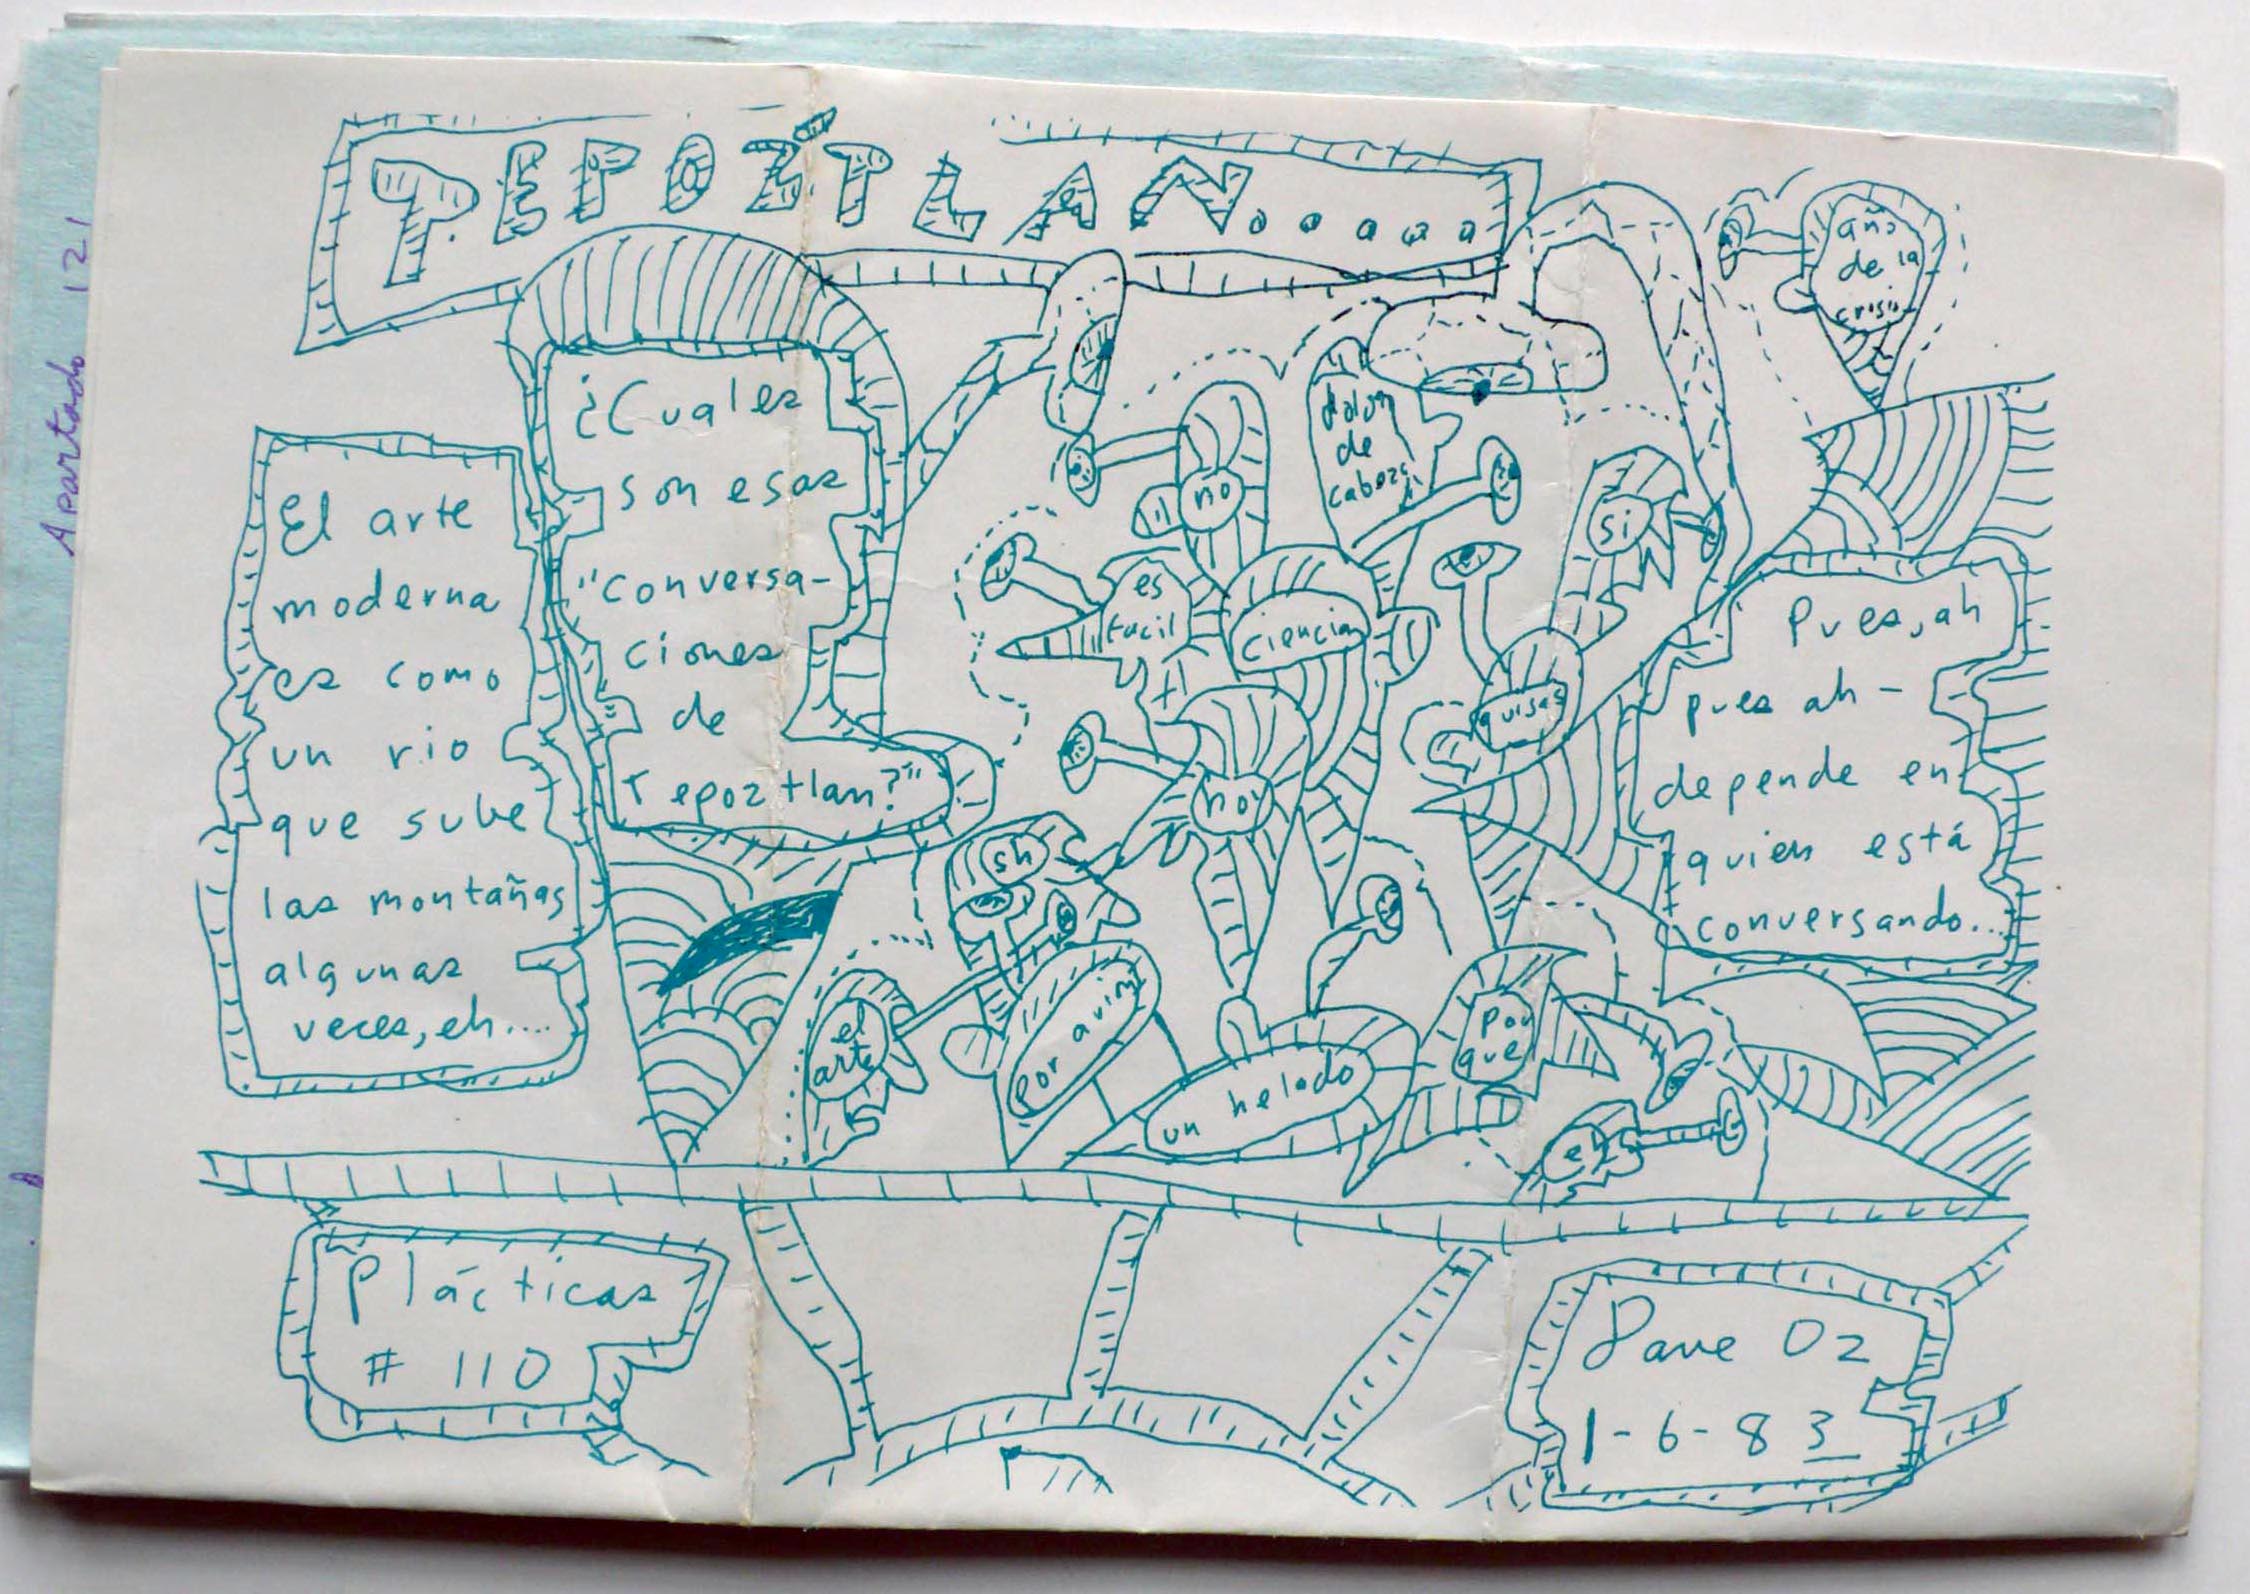 TEPOZTLAN.....
Apartado 121
El arte
moderna
es como
un rio
que sube
las montañas
algunas
veces, eh....
¿Cuales
son esas
"conversa-
ciones
de
Tepoztlan?"
año
de la
crisis
dolor
de
cabeza
no
si
es
facil
ciencia
quisas
no
sh
el
arte
por avion
un helado
por
que
eh
Pues, ah
pues ah -
depende en
quien está
conversando...
Plácticas
# 110
Dave Oz
1-6-83